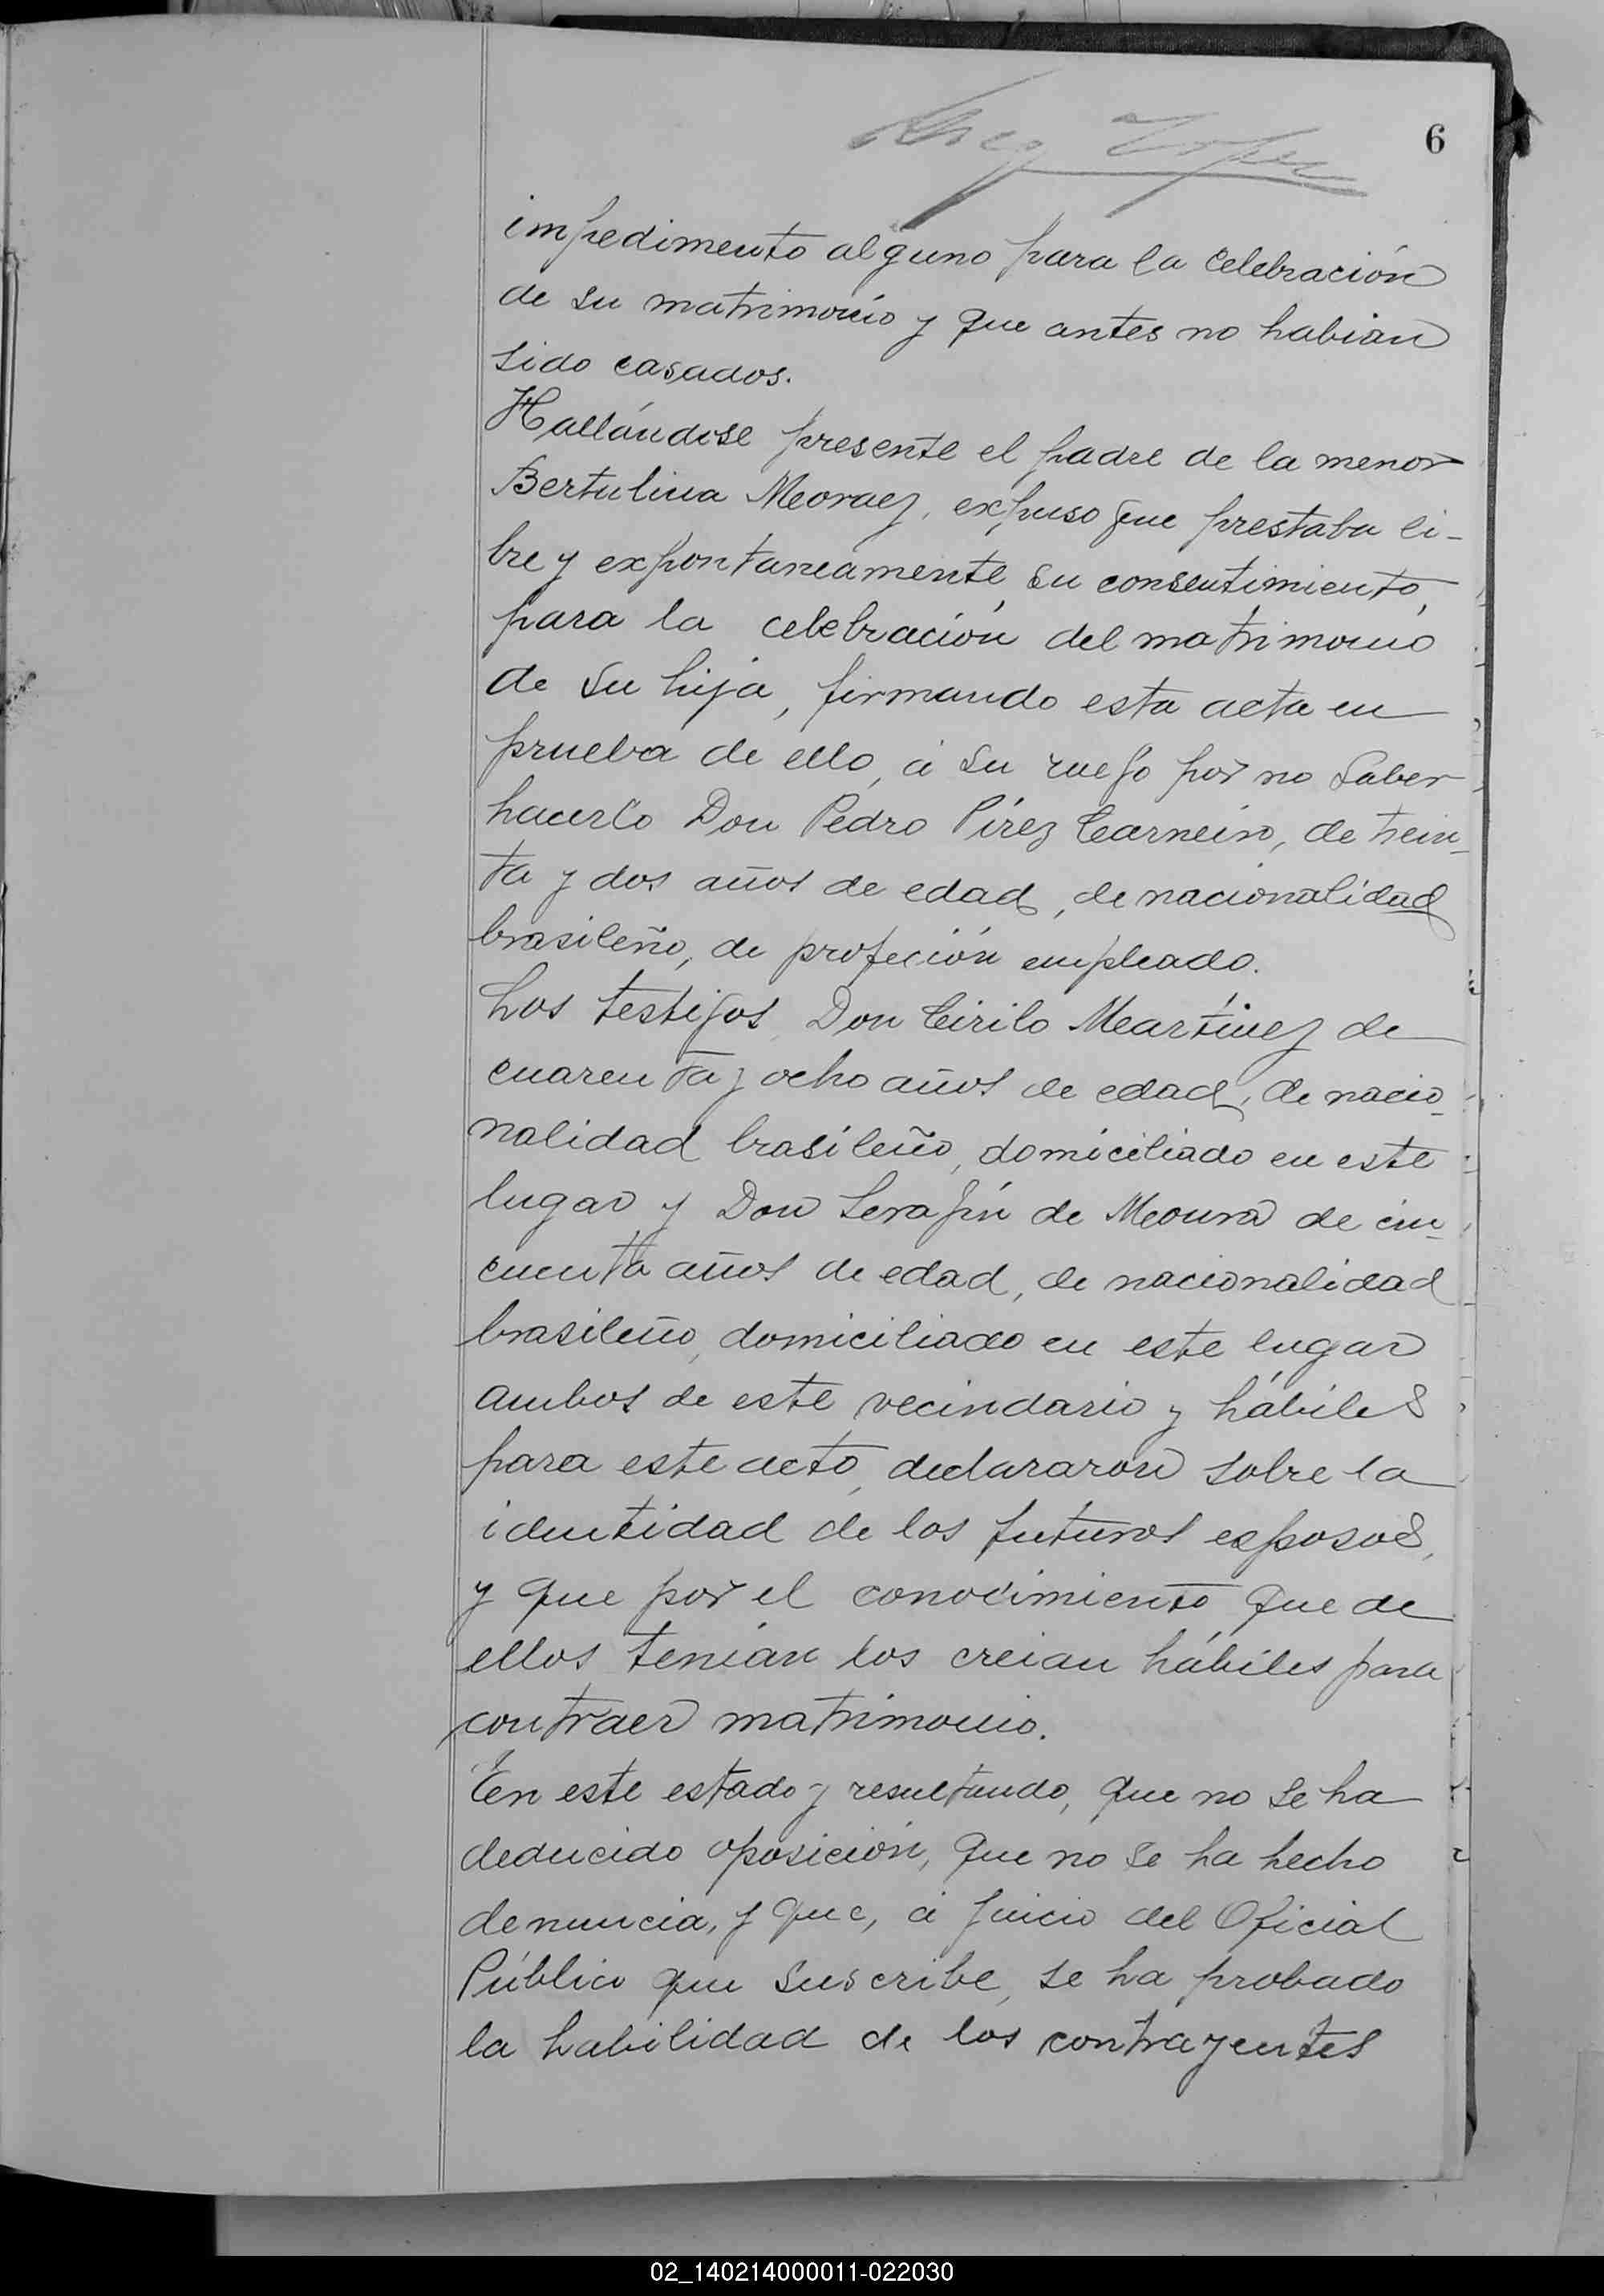 6
impedimento alguno para la celebración
de su matrimonio y que antes no habian
sido casados.
Hallándose presente el padre de la menor
Bertulina Moraez, expuso que prestaba li-
bre y expontaneamente su consentimiento,
para la celebración del matrimonio
de su hija, firmando esta acta en
prueba de ello, á su ruego por no saber
hacerlo Don Pedro Pírez Carneiro, de trein-
ta y dos años de edad, de nacionalidad
brasileño, de profeción empleado.
Los testigos, Don Cirilo Martínez de
cuarenta y ocho años de edad, de nacio-
nalidad brasileño, domiciliado en este
lugar y Don Serafín de Moura de cin-
cuenta años de edad, de nacionalidad
brasileño, domiciliado en este lugar
ambos de este vecindario y hábiles
para este acto, declararon sobre la
identidad de los futuros esposos,
y que por el conocimiento que de
ellos tenían los creian hábiles para
contraer matrimonio.
En este estado y resultando, que no se ha
deducido oposición, que no se ha hecho
denuncia, y que, á juicio del Oficial
Público que suscribe, se ha probado
la habilidad de los contrayentes
02_140214000011-022030